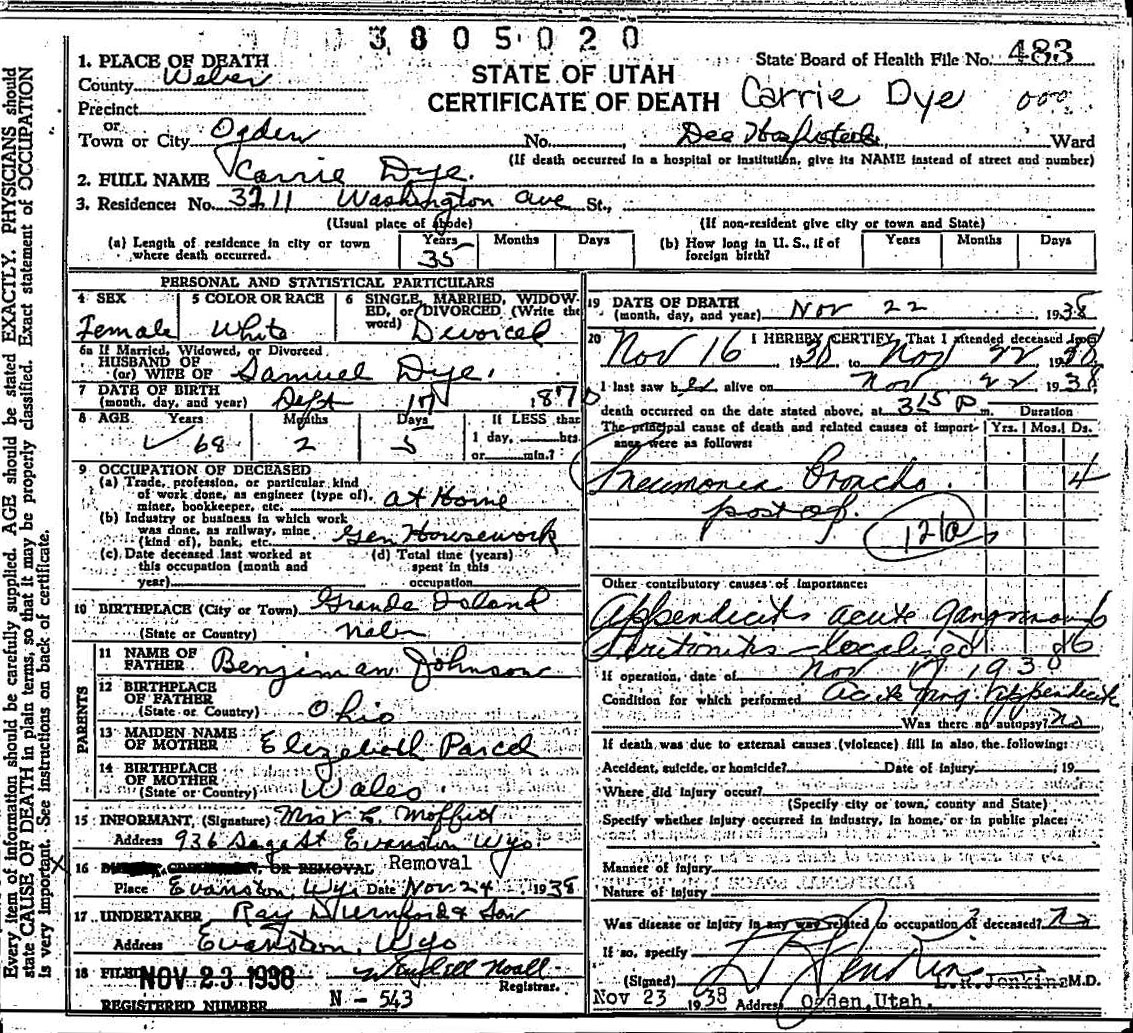 3805020
1. PLACE OF DEATH
State Board of Health File No. 483
County Weber
STATE OF UTAH
Precinct
CERTIFICATE OF DEATH Carrie Dye 000
or
Town or City Ogden No. Dee Hospital Ward
(If death occurred in a hospital or institution, give its NAME instead of street and number)
2. FULL NAME Carrie Dye.
3. Residence: No. 3211 Washington Ave St.,
(Usual place of abode) (If non-resident give city or town and State)
(a) Length of residence in city or town where death occurred. Years 35 Months Days
(b) How long in U. S., if of foreign birth? Years Months Days
PERSONAL AND STATISTICAL PARTICULARS
4 SEX Female
5 COLOR OR RACE White
6 SINGLE, MARRIED, WIDOWED, or DIVORCED (Write the word) Divorced
6a If Married, Widowed, or Divorced
HUSBAND OF
(or) WIFE OF Samuel Dye.
7 DATE OF BIRTH
(month, day, and year) Sept 17 1870
8 AGE Years 68 Months 2 Days 5
If LESS than 1 day, hrs. or min.?
9 OCCUPATION OF DECEASED
(a) Trade, profession, or particular kind
of work done, as engineer (type of),
miner, bookkeeper, etc. at Home
(b) Industry or business in which work
was done, as railway, mine
(kind of), bank, etc. Gen Housework
(c) Date deceased last worked at
this occupation (month and
year)
(d) Total time (years)
spent in this
occupation
10 BIRTHPLACE (City or Town) Grande Island
(State or Country) Nebr
PARENTS
11 NAME OF
FATHER Benjiman Johnson
12 BIRTHPLACE
OF FATHER
(State or Country) Ohio
13 MAIDEN NAME
OF MOTHER Elizebeth Parcel
14 BIRTHPLACE
OF MOTHER
(State or Country) Wales
15 INFORMANT, (Signature) Mrs V. L. Moffitt
Address 936 Sage St Evanston Wyo.
16 OR REMOVAL Removal
Place Evanston, Wyo Date Nov 24 1938
17 UNDERTAKER Ray & Son
Address Evanston, Wyo
18 FILED NOV 23 1938 Wendell Noall
Registrar.
REGISTERED NUMBER N - 543
19 DATE OF DEATH
(month, day, and year) Nov 22, 1938
20 I HEREBY CERTIFY, That I attended deceased from
Nov 16 1938 to Nov 22 1938
I last saw her alive on Nov 22 1938
death occurred on the date stated above, at 3 15 P m. Duration
The principal cause of death and related causes of importance were as follows: Yrs. Mos. Ds.
Pneumonia Broncho. 4
post op.
121a
Other contributory causes of importance:
Appendicitis acute gangrenous 6
Peritonitis - localized 6
If operation, date of Nov 17 1938
Condition for which performed acute gang. appendicitis
Was there an autopsy? no
If death was due to external causes (violence) fill in also, the following:
Accident, suicide, or homicide? Date of injury ; 19
Where did injury occur?
(Specify city or town, county and State)
Specify whether injury occurred in industry, in home, or in public place:
Manner of injury
Nature of injury
Was disease or injury in any way related to occupation of deceased? no
If so, specify
(Signed) L R Jenkins L.R. Jenkins M.D.
Nov 23 1938 Address Ogden, Utah.
Every item of information should be carefully supplied. AGE should be stated EXACTLY. PHYSICIANS should
state CAUSE OF DEATH in plain terms, so that it may be properly classified. Exact statement of OCCUPATION
is very important. See instructions on back of certificate.